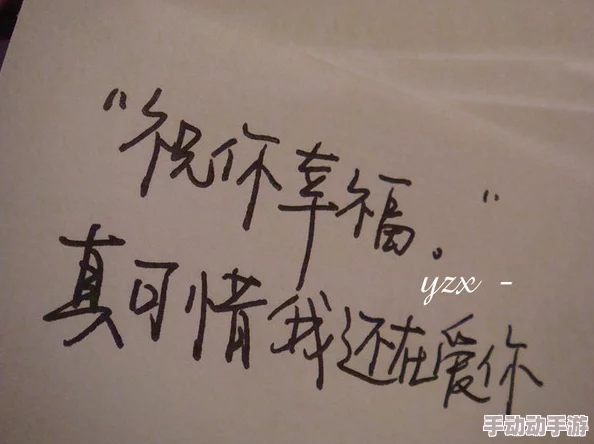 “祝你幸福。”
yzx -
真可惜我还在爱你
手动动手游